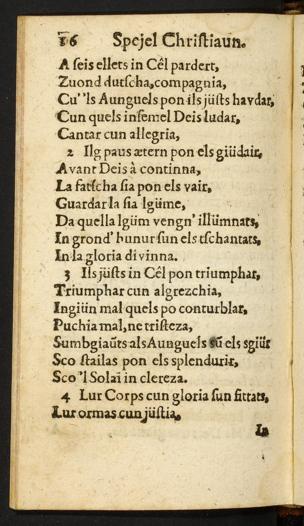 16 Spejel Christiaun.
A seis ellets in Cêl pardert,
Zuond dutscha, compagnia,
Cu' 'ls Aunguels pon ils jüsts havdar,
Cun quels insemel Deis ludar,
Cantar cun allegria,
2 Ilg paus ætern pon els giüdair,
Avant Deis à continna,
La fatscha sia pon els vair,
Guardar la sia lgüme,
Da quella lgüm vengn' illümnats,
In grond' hunur sun els tschantats,
In la gloria divinna.
3 Ils jüsts in Cêl pon triumphar,
Triumphar cun algrezchia,
Ingiün mal quels po conturblar,
Puchia mal, ne tristeza,
Sumbgiaūts als Aunguels sū els sgiür
Sco stailas pon els splendurir,
Sco 'l Solai in clereza.
4 Lur Corps cun gloria sun fittats,
Lur ormas cun jüstia,
In